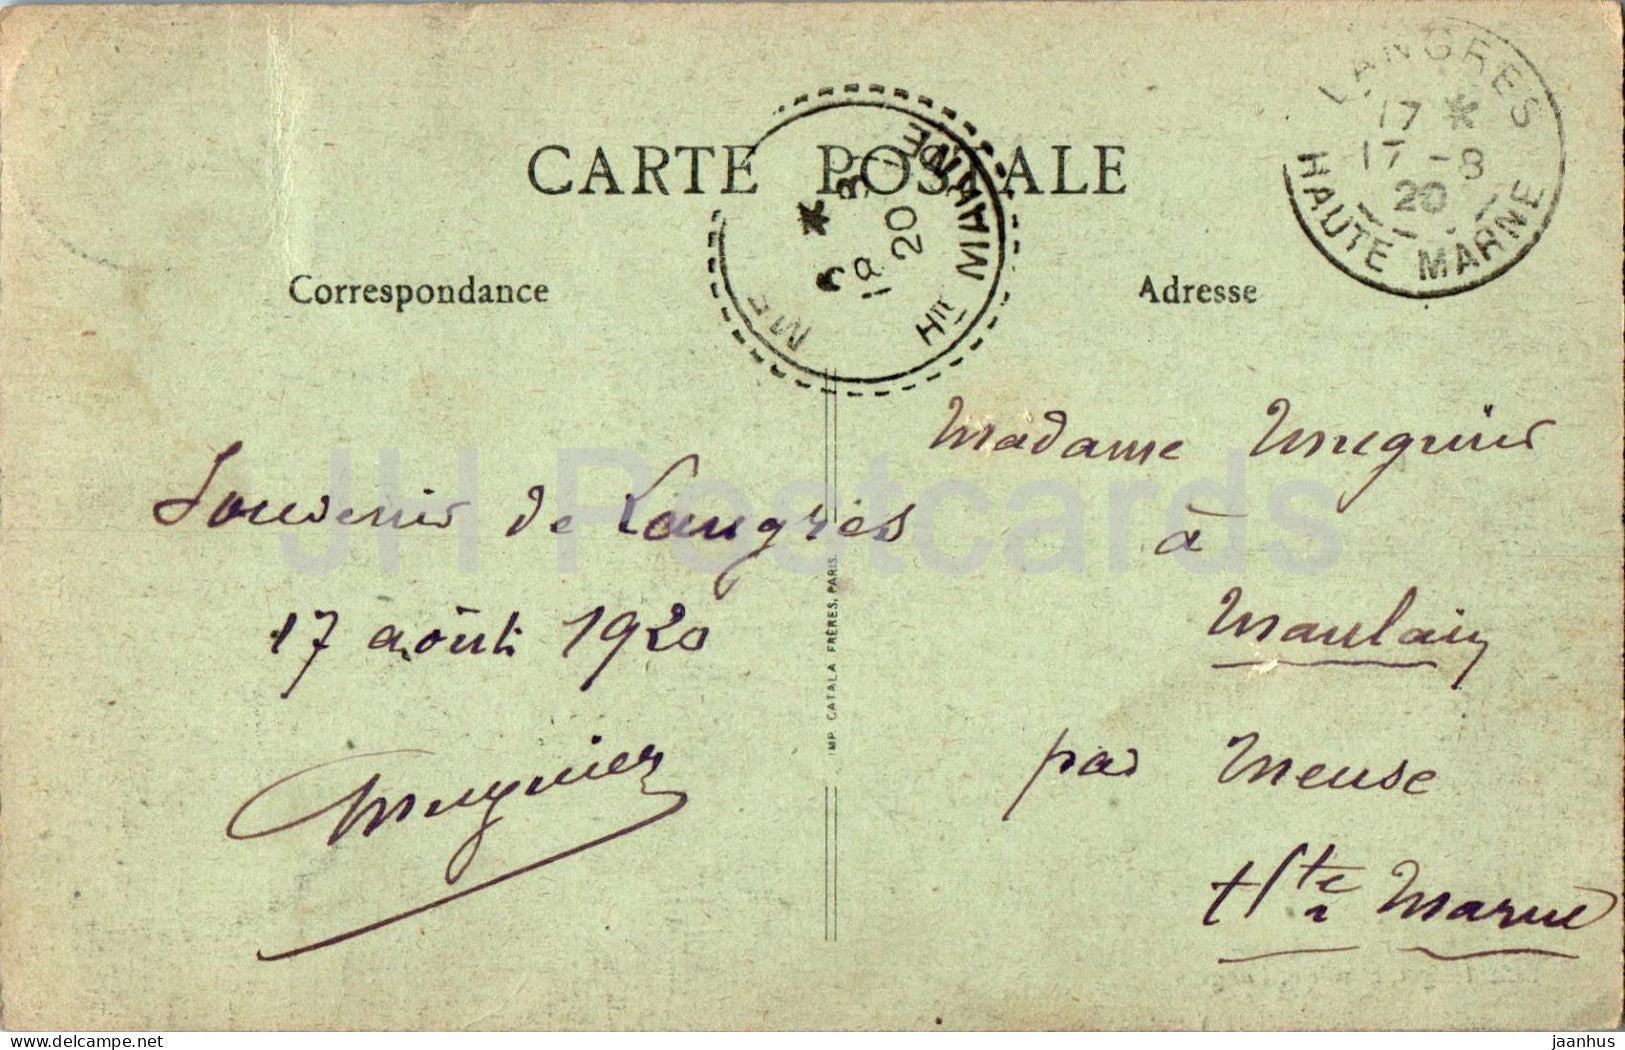 CARTE POSTALE
Correspondance
Adresse
LANGRES
17 *
17 - 8
20
HAUTE MARNE
HTE MARNE
19 - 8
20
Souvenir de Langres
17 août 1920
Muguier
Madame Muguier
à
Maulain
par Meuse
Hte Marne
IMP. CATALA FRÈRES, PARIS.
JH Postcards
www.delcampe.net
jaanhus